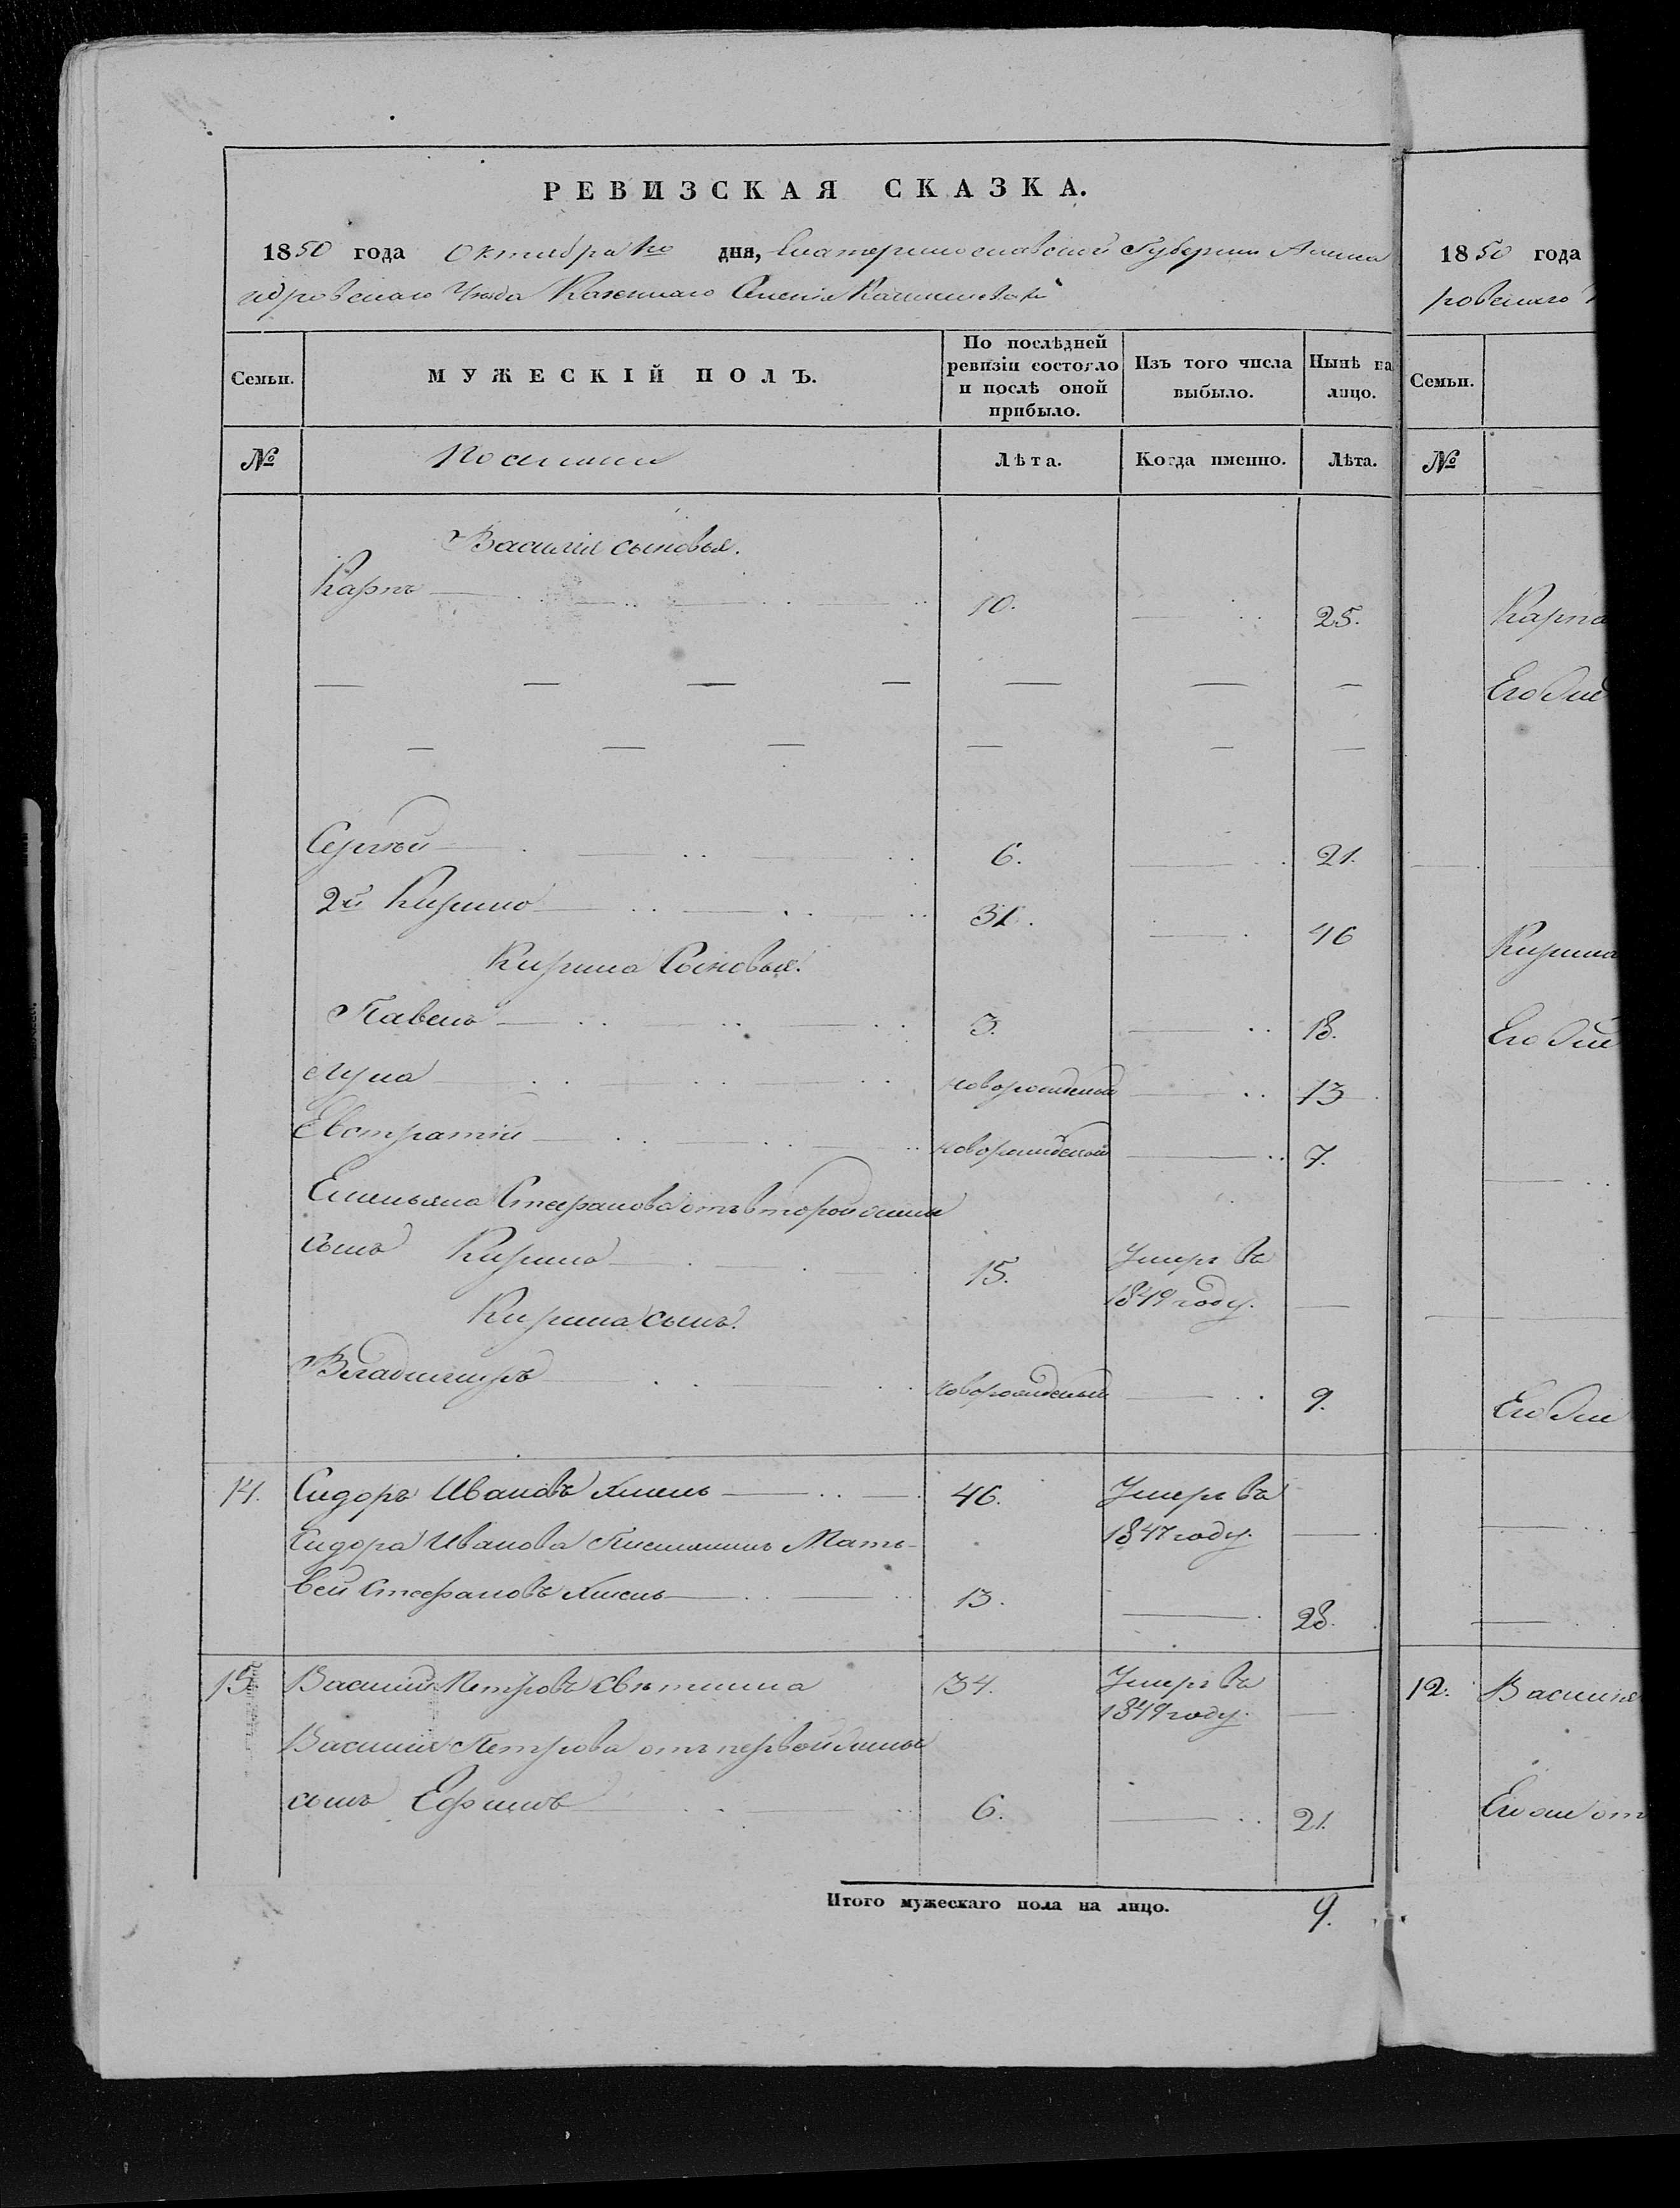 РЕВИЗСКАЯ СКАЗКА.
1850 года Октября 1го дня, Екатеринославской Губернии Алекса
ндровскаго Уезда Казеннаго Селенія
Семьи.
МУЖЕСКІЙ ПОЛЪ.
По послѣдней ревизіи состояло и послѣ оной прибыло.
Изъ того числа выбыло.
Нынѣ на лицо.
№
Лѣта.
Когда именно.
Лѣта.
Василія сыновья.
Карпъ 10. 25.
Сергѣй 6. 21.
2й Кирило 31. 46
Кирила Сыновья.
Павелъ 3. 18.
Лука новорожденый 13
Евстратій новорожденый 7.
Емельяна Стефанова отъ второй жены
сынъ Кирило 15. Умеръ въ
1849 году.
Кирила сынъ.
Владимиръ новорожденый 9.
14. Сидоръ Ивановъ Хмель 46. Умеръ въ
1847 году.
Сидора Иванова Племянникъ Мат-
вей Стефановъ Хмель 13. 28.
15 Василий Петровъ 34. Умеръ въ
1849 году.
Василия Петрова отъ первой жены
сынъ Ефимъ 6. 21.
Итого мужескаго пола на лицо. 9.
1850 года
ровскаго
Семьи.
№
Карпа
Кирила
12. Василия